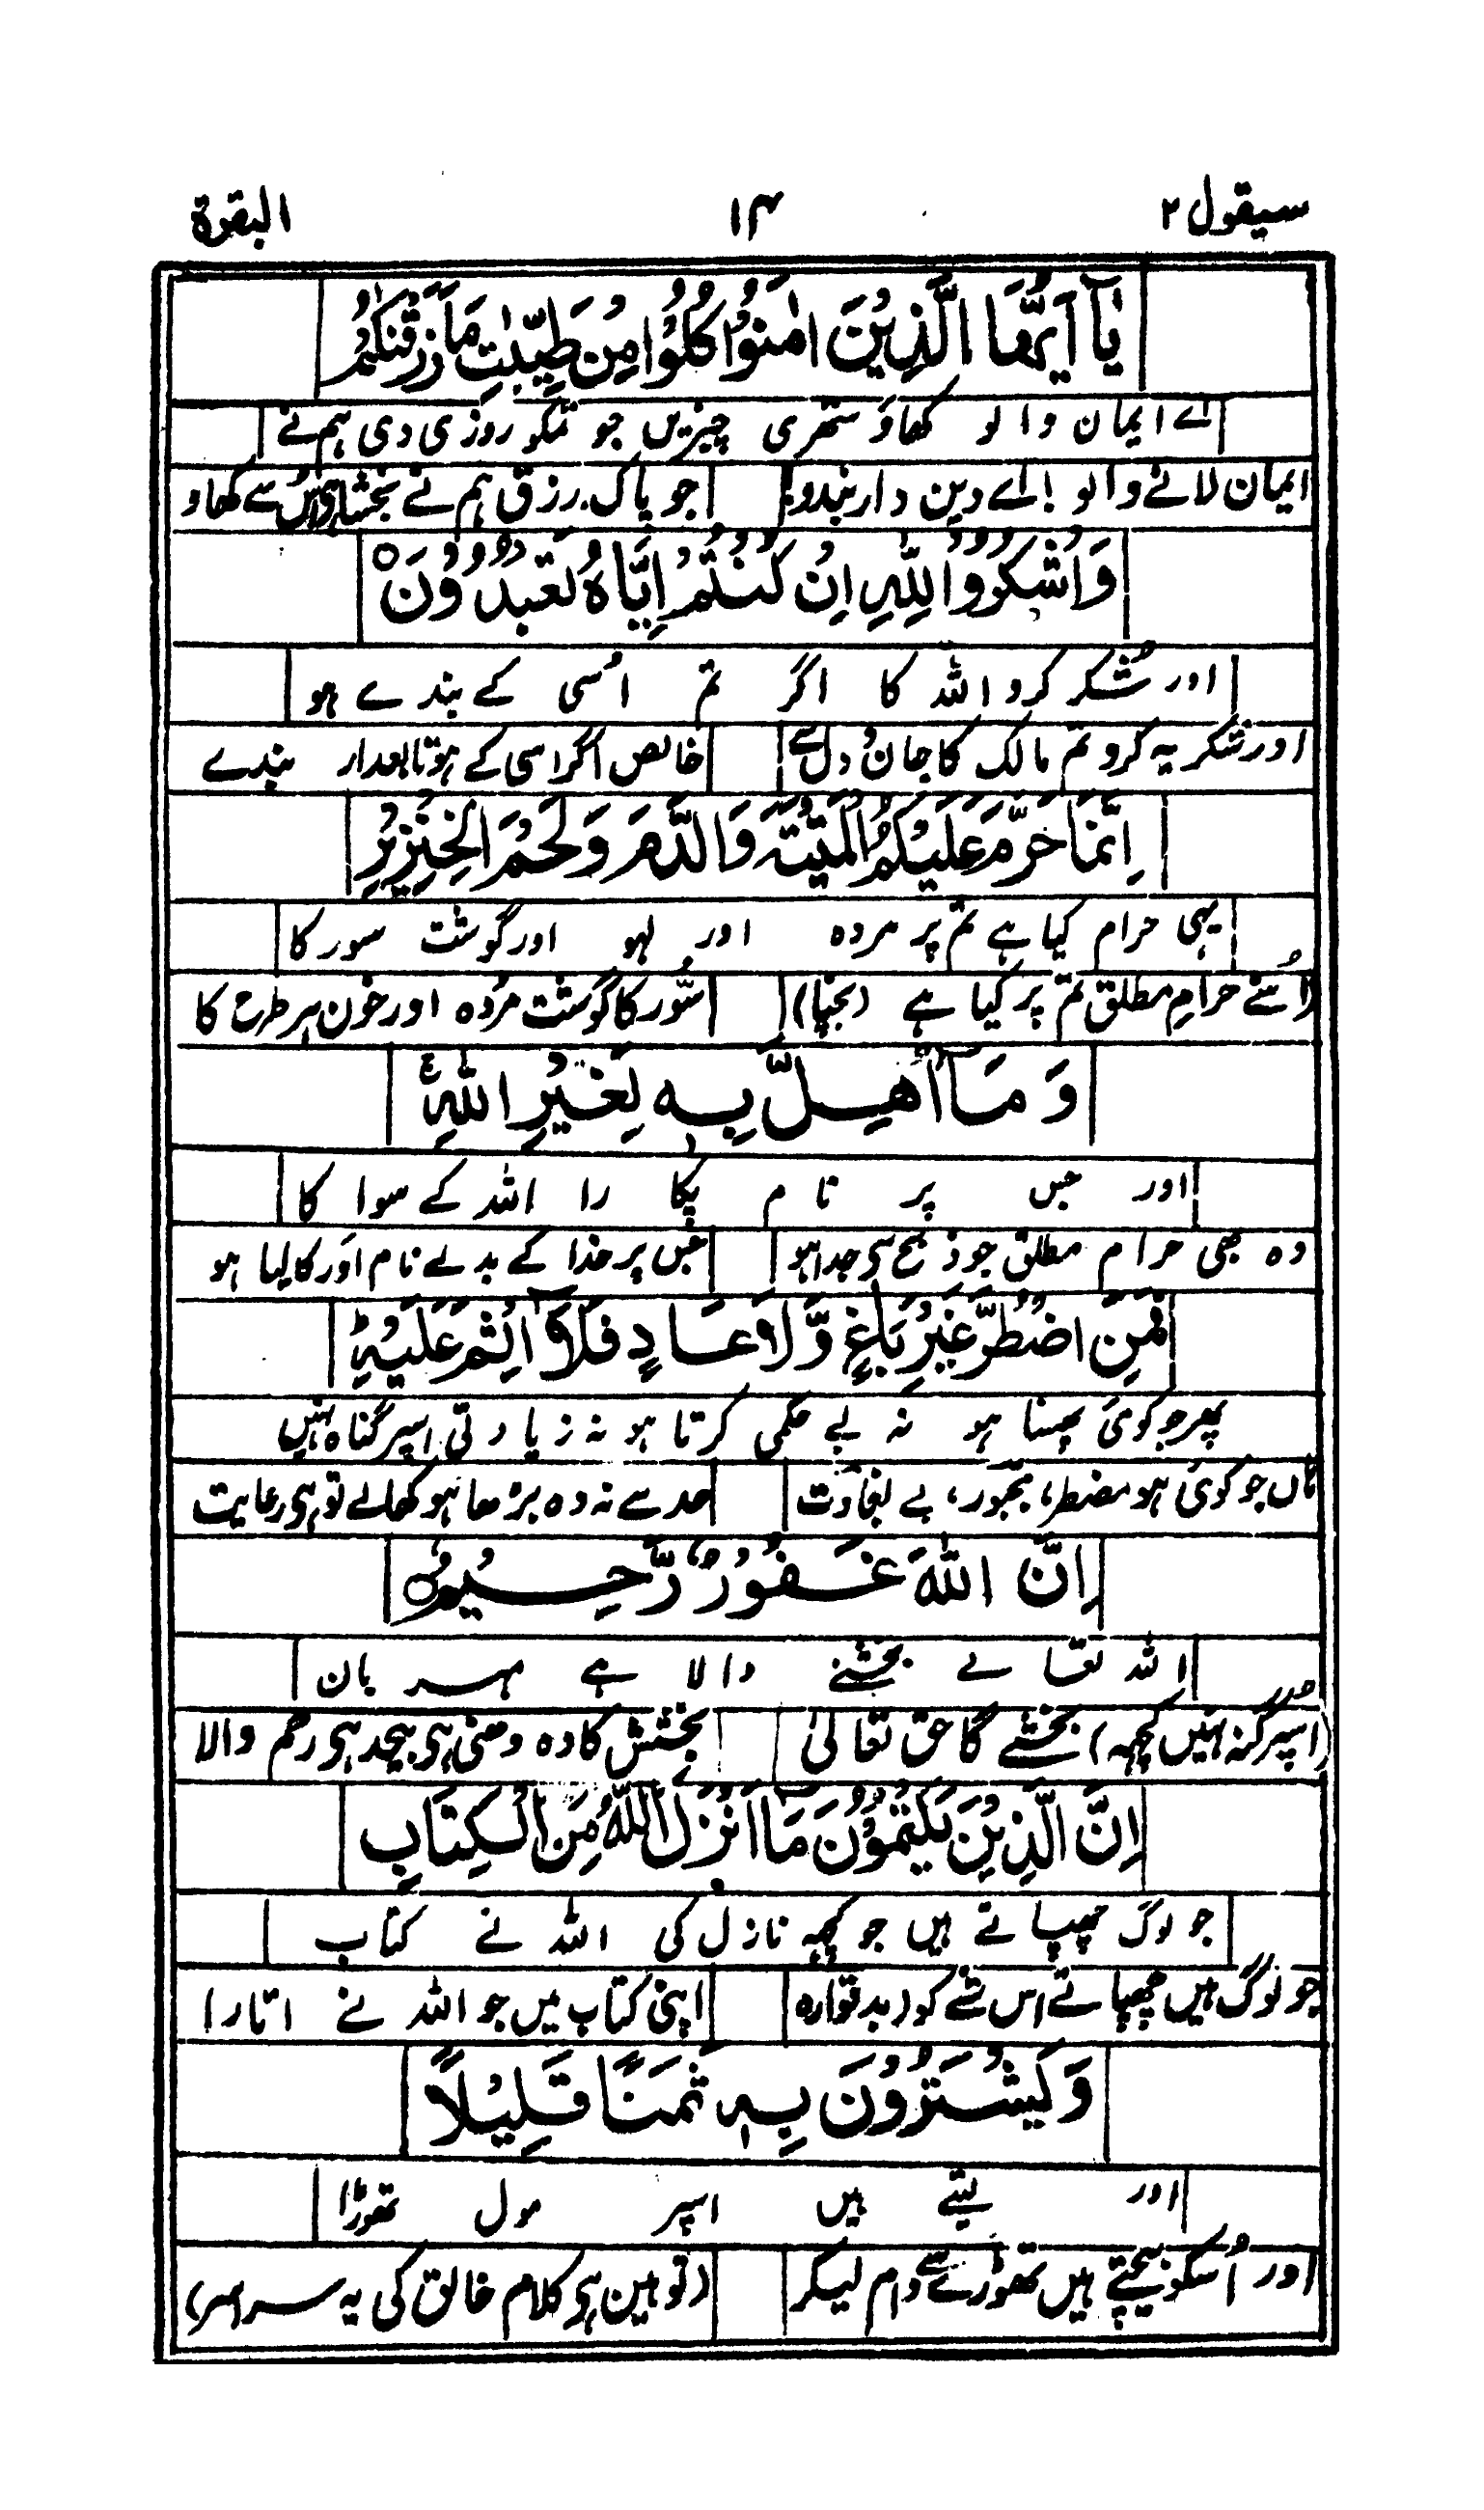 سیقول ۲ ۱۴ البقرة
یٰٓاَ اَیُّھَا الَّذِیْنَ اٰمَنُوْا کُلُوْا مِنْ طَیِّبٰتِ مَا رَزَقْنٰکُمْ
اے ایمان والو کھاؤ ستھری چیزیں جو تمکو روزی دی ہم نے
ایمان لانے والو! اے دین دار بندو! جو پاک رزق ہم نے بخشا ہی اس سے کھاو
وَاشْکُرُوْا لِلّٰہِ اِنْ کُنْتُمْ اِیَّاہُ تَعْبُدُوْنَ ہ
اور شکر کرو اللہ کا اگر تم اُسی کے بندے ہو
اور شکریہ کرو تم مالک کا جان و دل سے خالص اگر اسی کے ہو تابعدار بندے
اِنَّمَا حَرَّمَ عَلَیْکُمُ الْمَیْتَۃَ وَالدَّمَ وَلَحْمَ الْخِنْزِیْرِ
یہی حرام کیا ہے تم پر مردہ اور لہو اور گوشت سور کا
اُسنے حرامِ مطلق تم پر کیا ہے (بچنا) سُّور کا گوشت مُردہ اور خون ہر طرح کا
وَ مَآ اُھِلَّ بِہٖ لِغَیْرِ اللّٰہِ ۚ
اور جس پر نام پکا را اللہ کے سوا کا
وہ بھی حرام مطلق جو ذبح ہی جدا ہو جس پر خدا کے بدلے نام اَور کا لیا ہو
فَمَنِ اضْطُرَّ غَیْرَ بَاغٍ وَّلَا عَادٍ فَلَآ اِثْمَ عَلَیْہِ ؕ
پھر جو کوئ پھنسا ہو نہ بے حکمی کرتا ہو نہ زیا دتی اسپر گناہ نہیں
ہاں جو کوئ ہو مضطر، مجبور، بے بغاوَت حد سے نہ وہ بڑھا ہو کھالے تو ہی رعایت
اِنَّ اللّٰہَ غَفُوْرٌ رَّحِیْمٌ ہ
اللہ تعا لے بخشنے والا ہے مہر بان
(اسپر گنہ نہیں کچھہ) بخشے گا حق تعالیٰ بخشش کا وہ دھنی ہی بیحد ہی رحم والا
اِنَّ الَّذِیْنَ یَکْتُمُوْنَ مَآ اَنْزَلَ اللّٰہُ مِنَ الْکِتَابِ
جو لوگ چھپا تے ہیں جو کچھہ نازل کی اللہ نے کتاب
جو لوگ ہیں چھپاتے اس شے کو (بدقوارہ اپنی کتاب میں جو اللہ نے اتارا
وَیَشْتَرُوْنَ بِہٖ ثَمَنًا قَلِیْلًا
اور لیتے ہیں اسپر مول تھوڑا
اور اُسکو بیچتے ہیں تھوڑے سے دام لیکر (توہین ہی کلام خالق کی یہ سراسر)